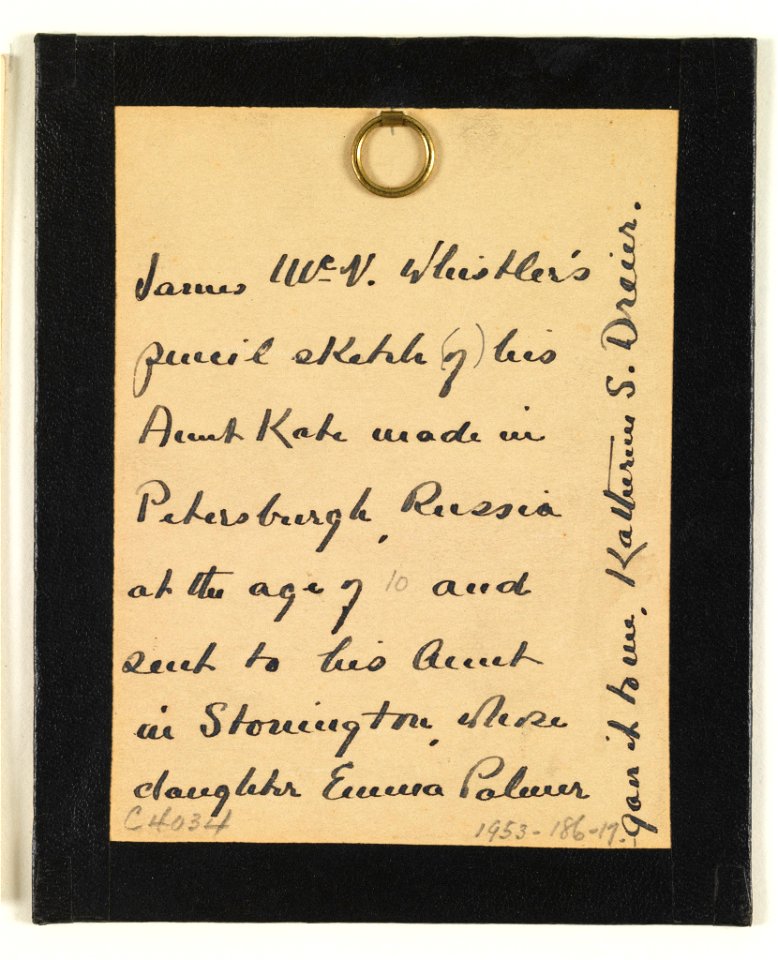 James McN. Whistler's
pencil sketch (of) his
Aunt Kate made in
Petersburgh, Russia
at the age of 10 and
sent to his Aunt
in Stonington, whose
daughter Emma Palmer
gave it to me. Katherine S. Dreier.
C4034
1953-186-17.